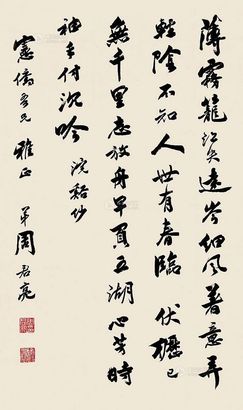 薄霧籠江失遠岑細風著意弄
輕陰不知人世有春臨 伏櫪已
無千里志放舟早負五湖心芳時
袖手付沉吟 浣谿沙
憲僑吾兄 雅正 弟周君亮